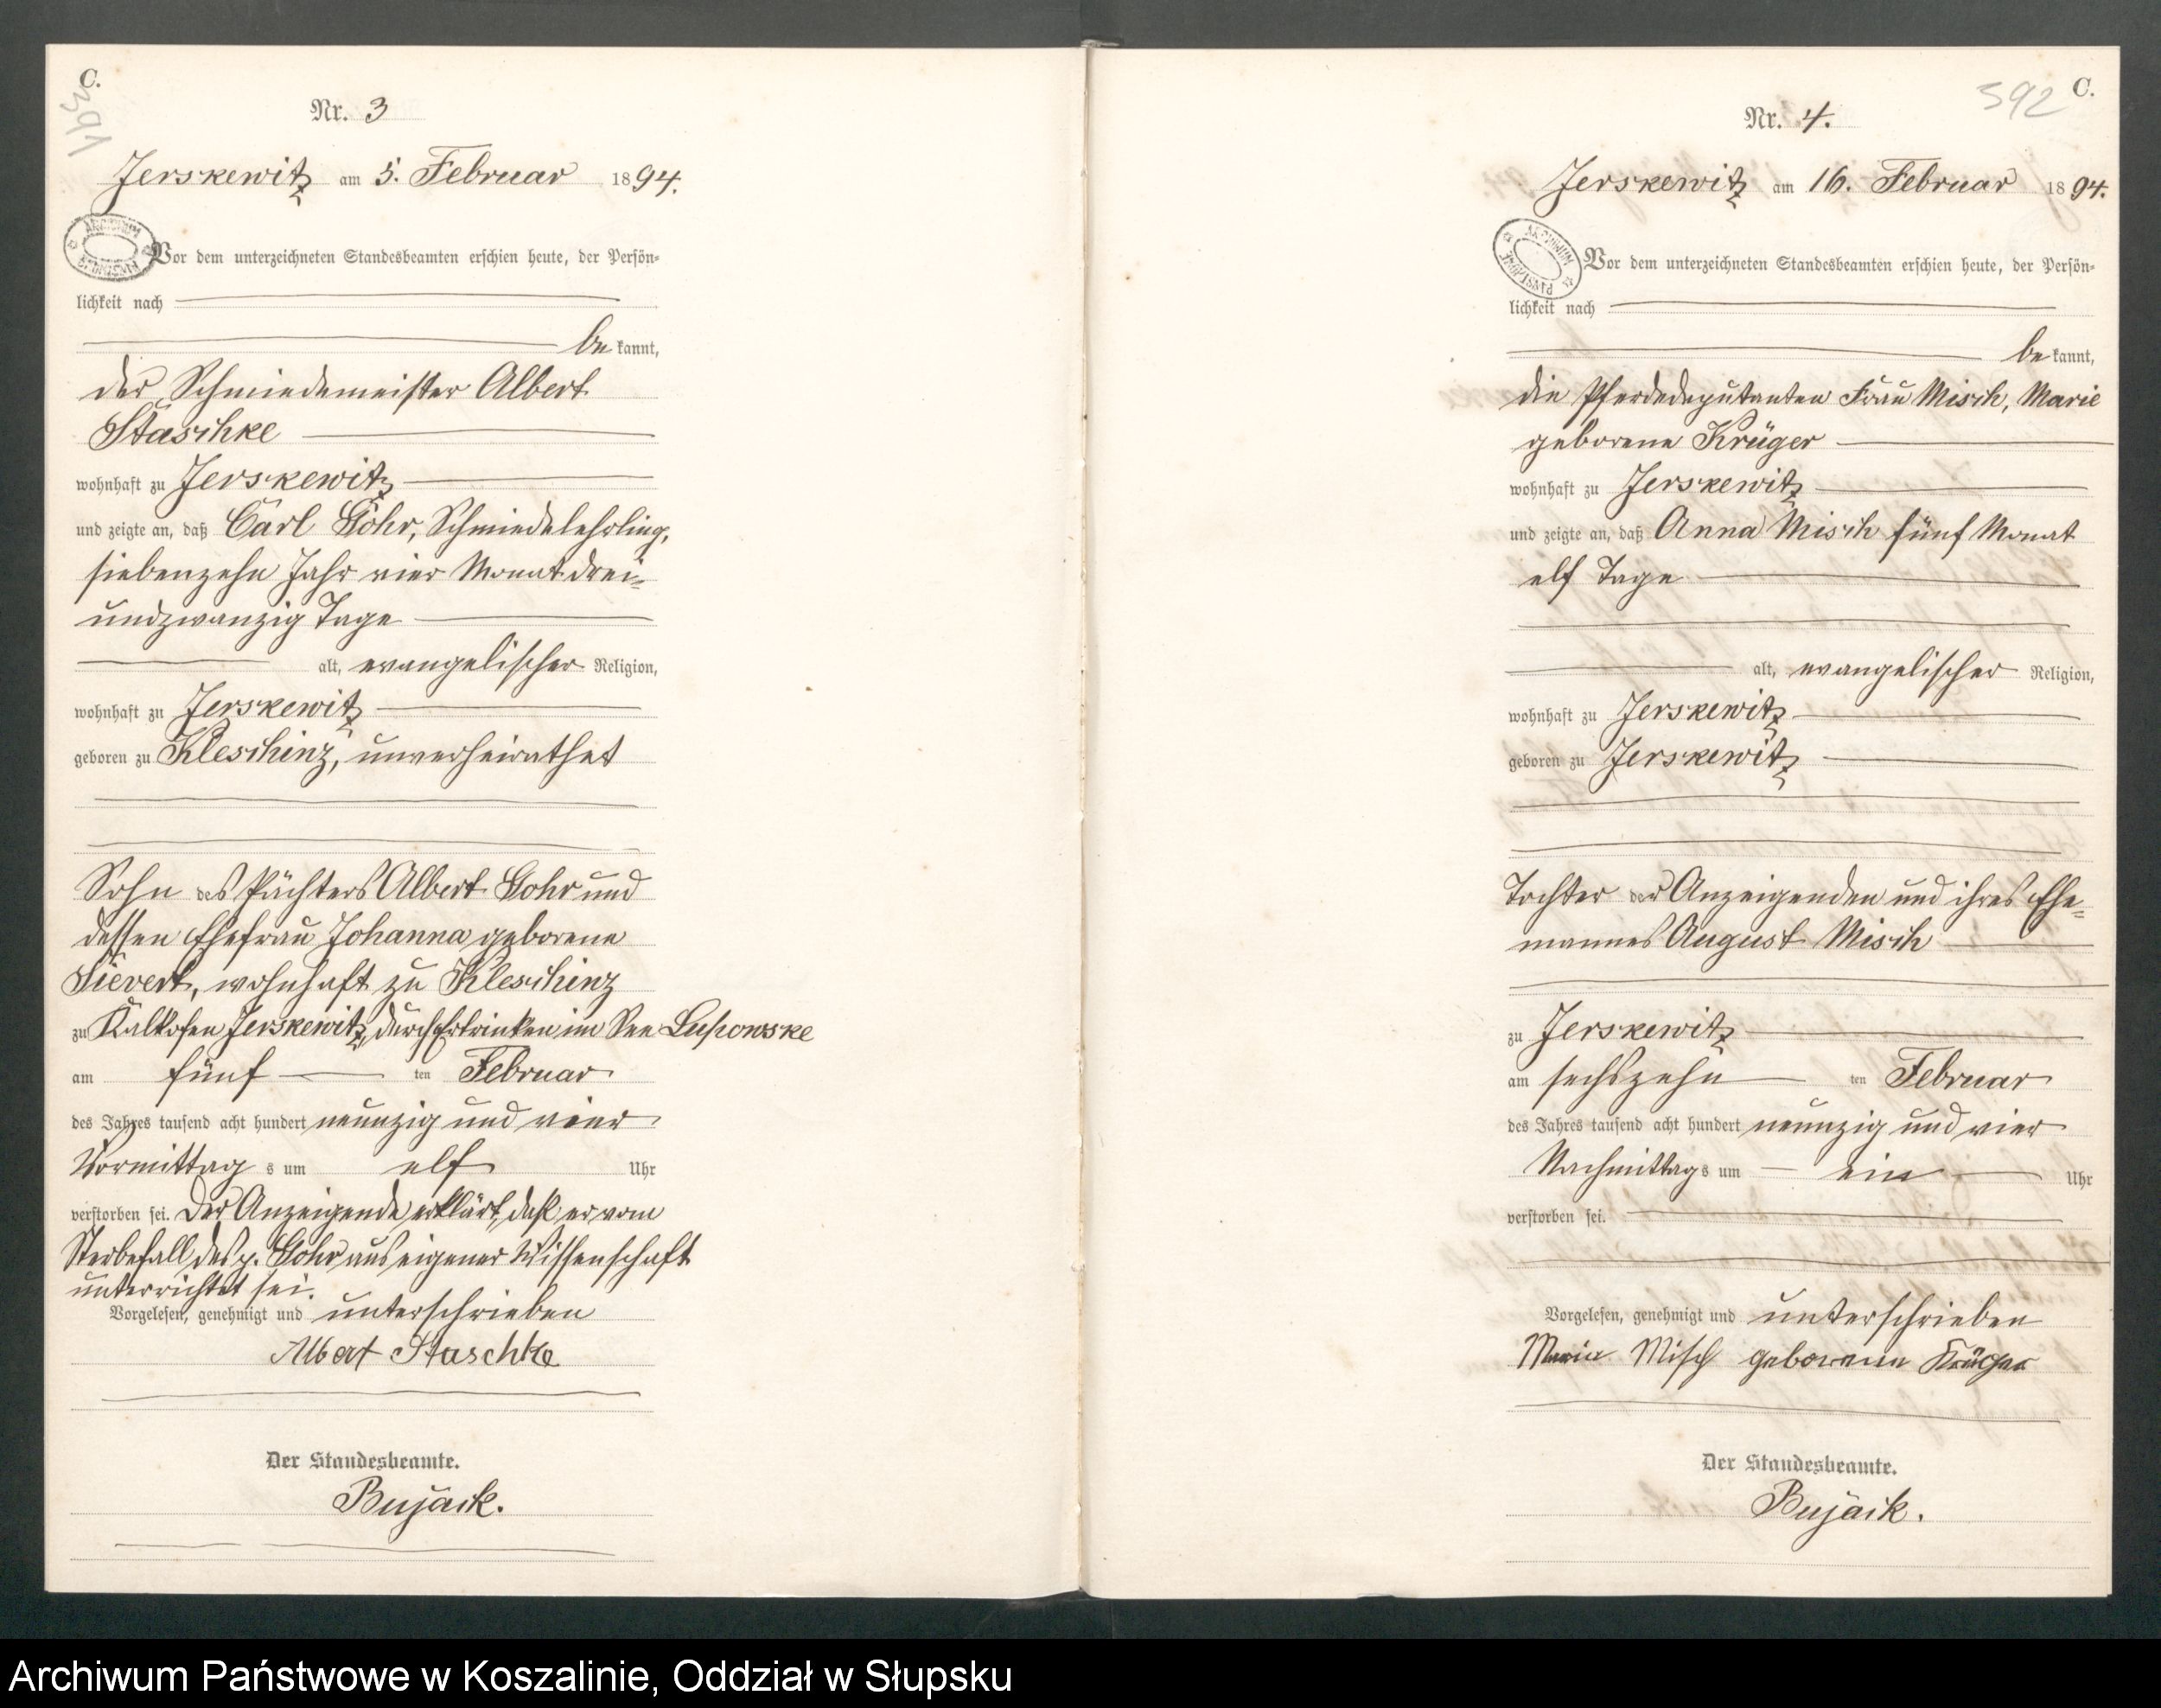 C.
391
Nr. 3
Jerskewitz am 5. Februar 1894.
ARCHIWUM PAŃSTWOWE
Vor dem unterzeichneten Standesbeamten erschien heute, der Persön-
lichkeit nach
be kannt,
der Schmiedemeister Albert
Staschke
wohnhaft zu Jerskewitz
und zeigte an, daß Carl Gohr, Schmiedelehrling,
siebenzehn Jahr vier Monat drei-
undzwanzig Tage
alt, evangelischer Religion,
wohnhaft zu Jerskewitz
geboren zu Kleschinz, unverheirathet
Sohn des Pächters Albert Gohr und
dessen Ehefrau Johanna geborene
Sievert, wohnhaft zu Kleschinz
zu Kalkofen Jerskewitz, durch Ertrinken im See Lupowske
am fünf ten Februar
des Jahres tausend acht hundert neunzig und vier
Vormittag s um elf Uhr
verstorben sei. Der Anzeigende erklärt, daß er vom
Sterbefall des p. Gohr aus eigener Wissenschaft
unterrichtet sei.
Vorgelesen, genehmigt und unterschrieben
Albert Staschke
Der Standesbeamte.
Bujack.
592 C.
Nr. 4.
Jerskewitz am 16. Februar 1894.
ARCHIWUM PAŃSTWOWE
Vor dem unterzeichneten Standesbeamten erschien heute, der Persön-
lichkeit nach
be kannt,
die Pferdedeputanten Frau Misch, Marie
geborene Krüger
wohnhaft zu Jerskewitz
und zeigte an, daß Anna Misch fünf Monat
elf Tage
alt, evangelischer Religion,
wohnhaft zu Jerskewitz
geboren zu Jerskewitz
Tochter der Anzeigenden und ihres Ehe-
mannes August Misch
zu Jerskewitz
am sechszehn ten Februar
des Jahres tausend acht hundert neunzig und vier
Nachmittags um ein Uhr
verstorben sei.
Vorgelesen, genehmigt und unterschrieben
Marie Misch geborene Krüger
Der Standesbeamte.
Bujack.
Archiwum Państwowe w Koszalinie, Oddział w Słupsku